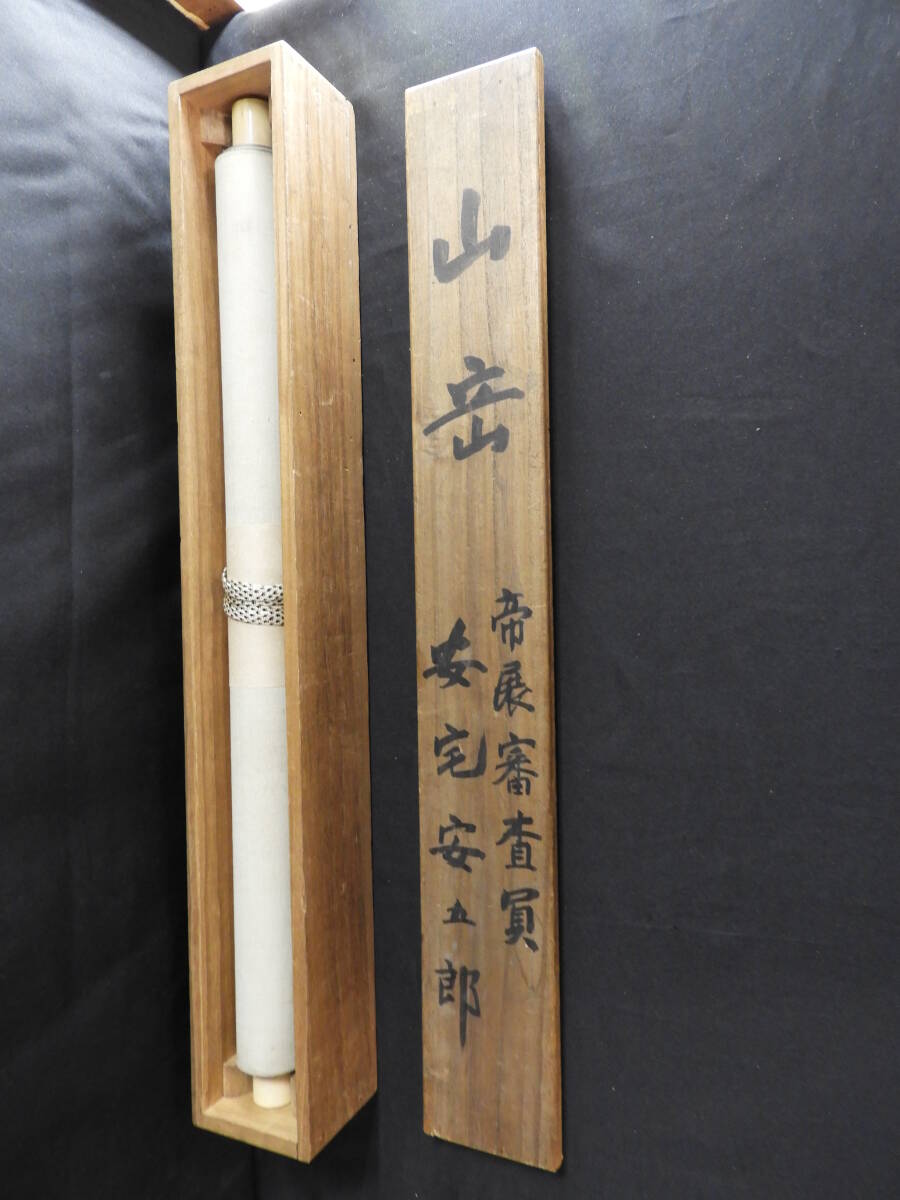 山岳
帝展審査員
安宅安五郎